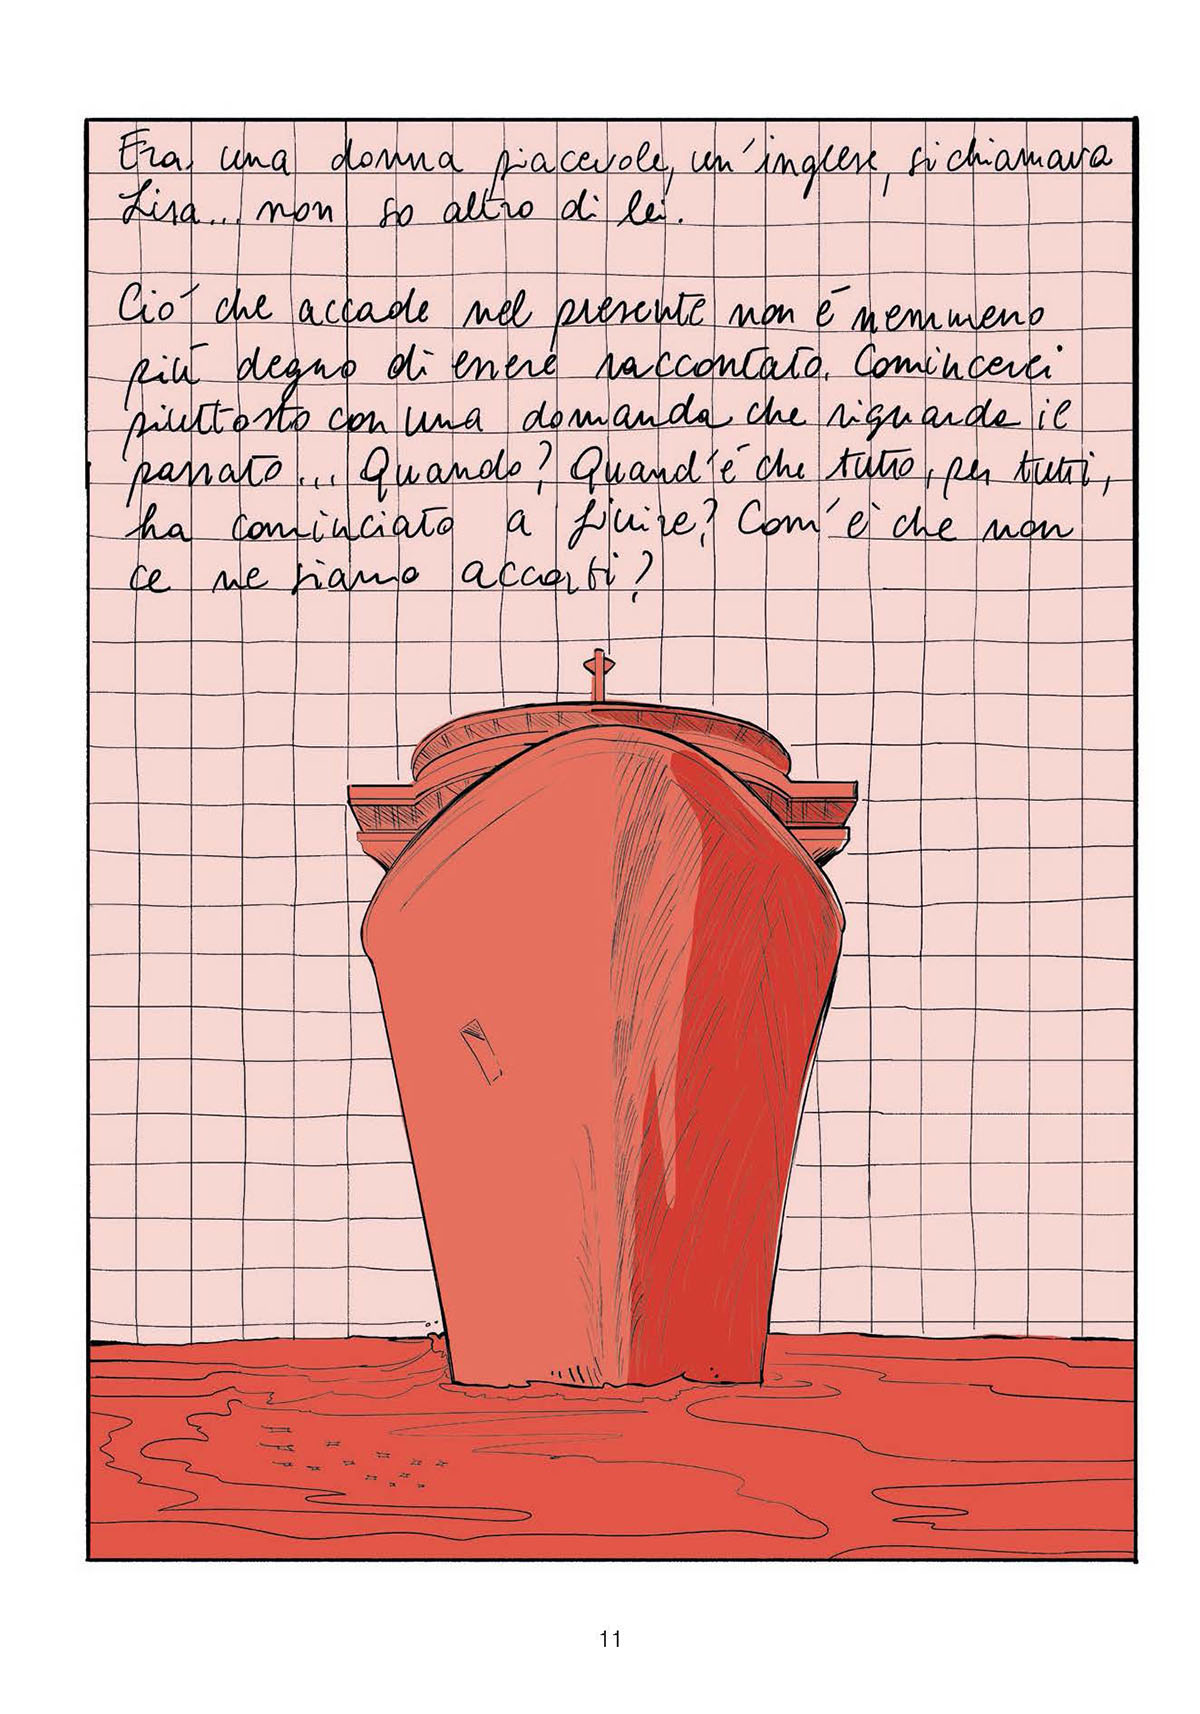 Era una donna piacevole, un'inglese, si chiamava
Lisa... non so altro di lei.
Ció che accade nel presente non é nemmeno
piú degno di essere raccontato. Comincerei
piuttosto con una domanda che riguarda il
passato... Quando? Quand'é che tutto, per tutti,
ha cominciato a finire? Com'é che non
ce ne siamo accorti?
11